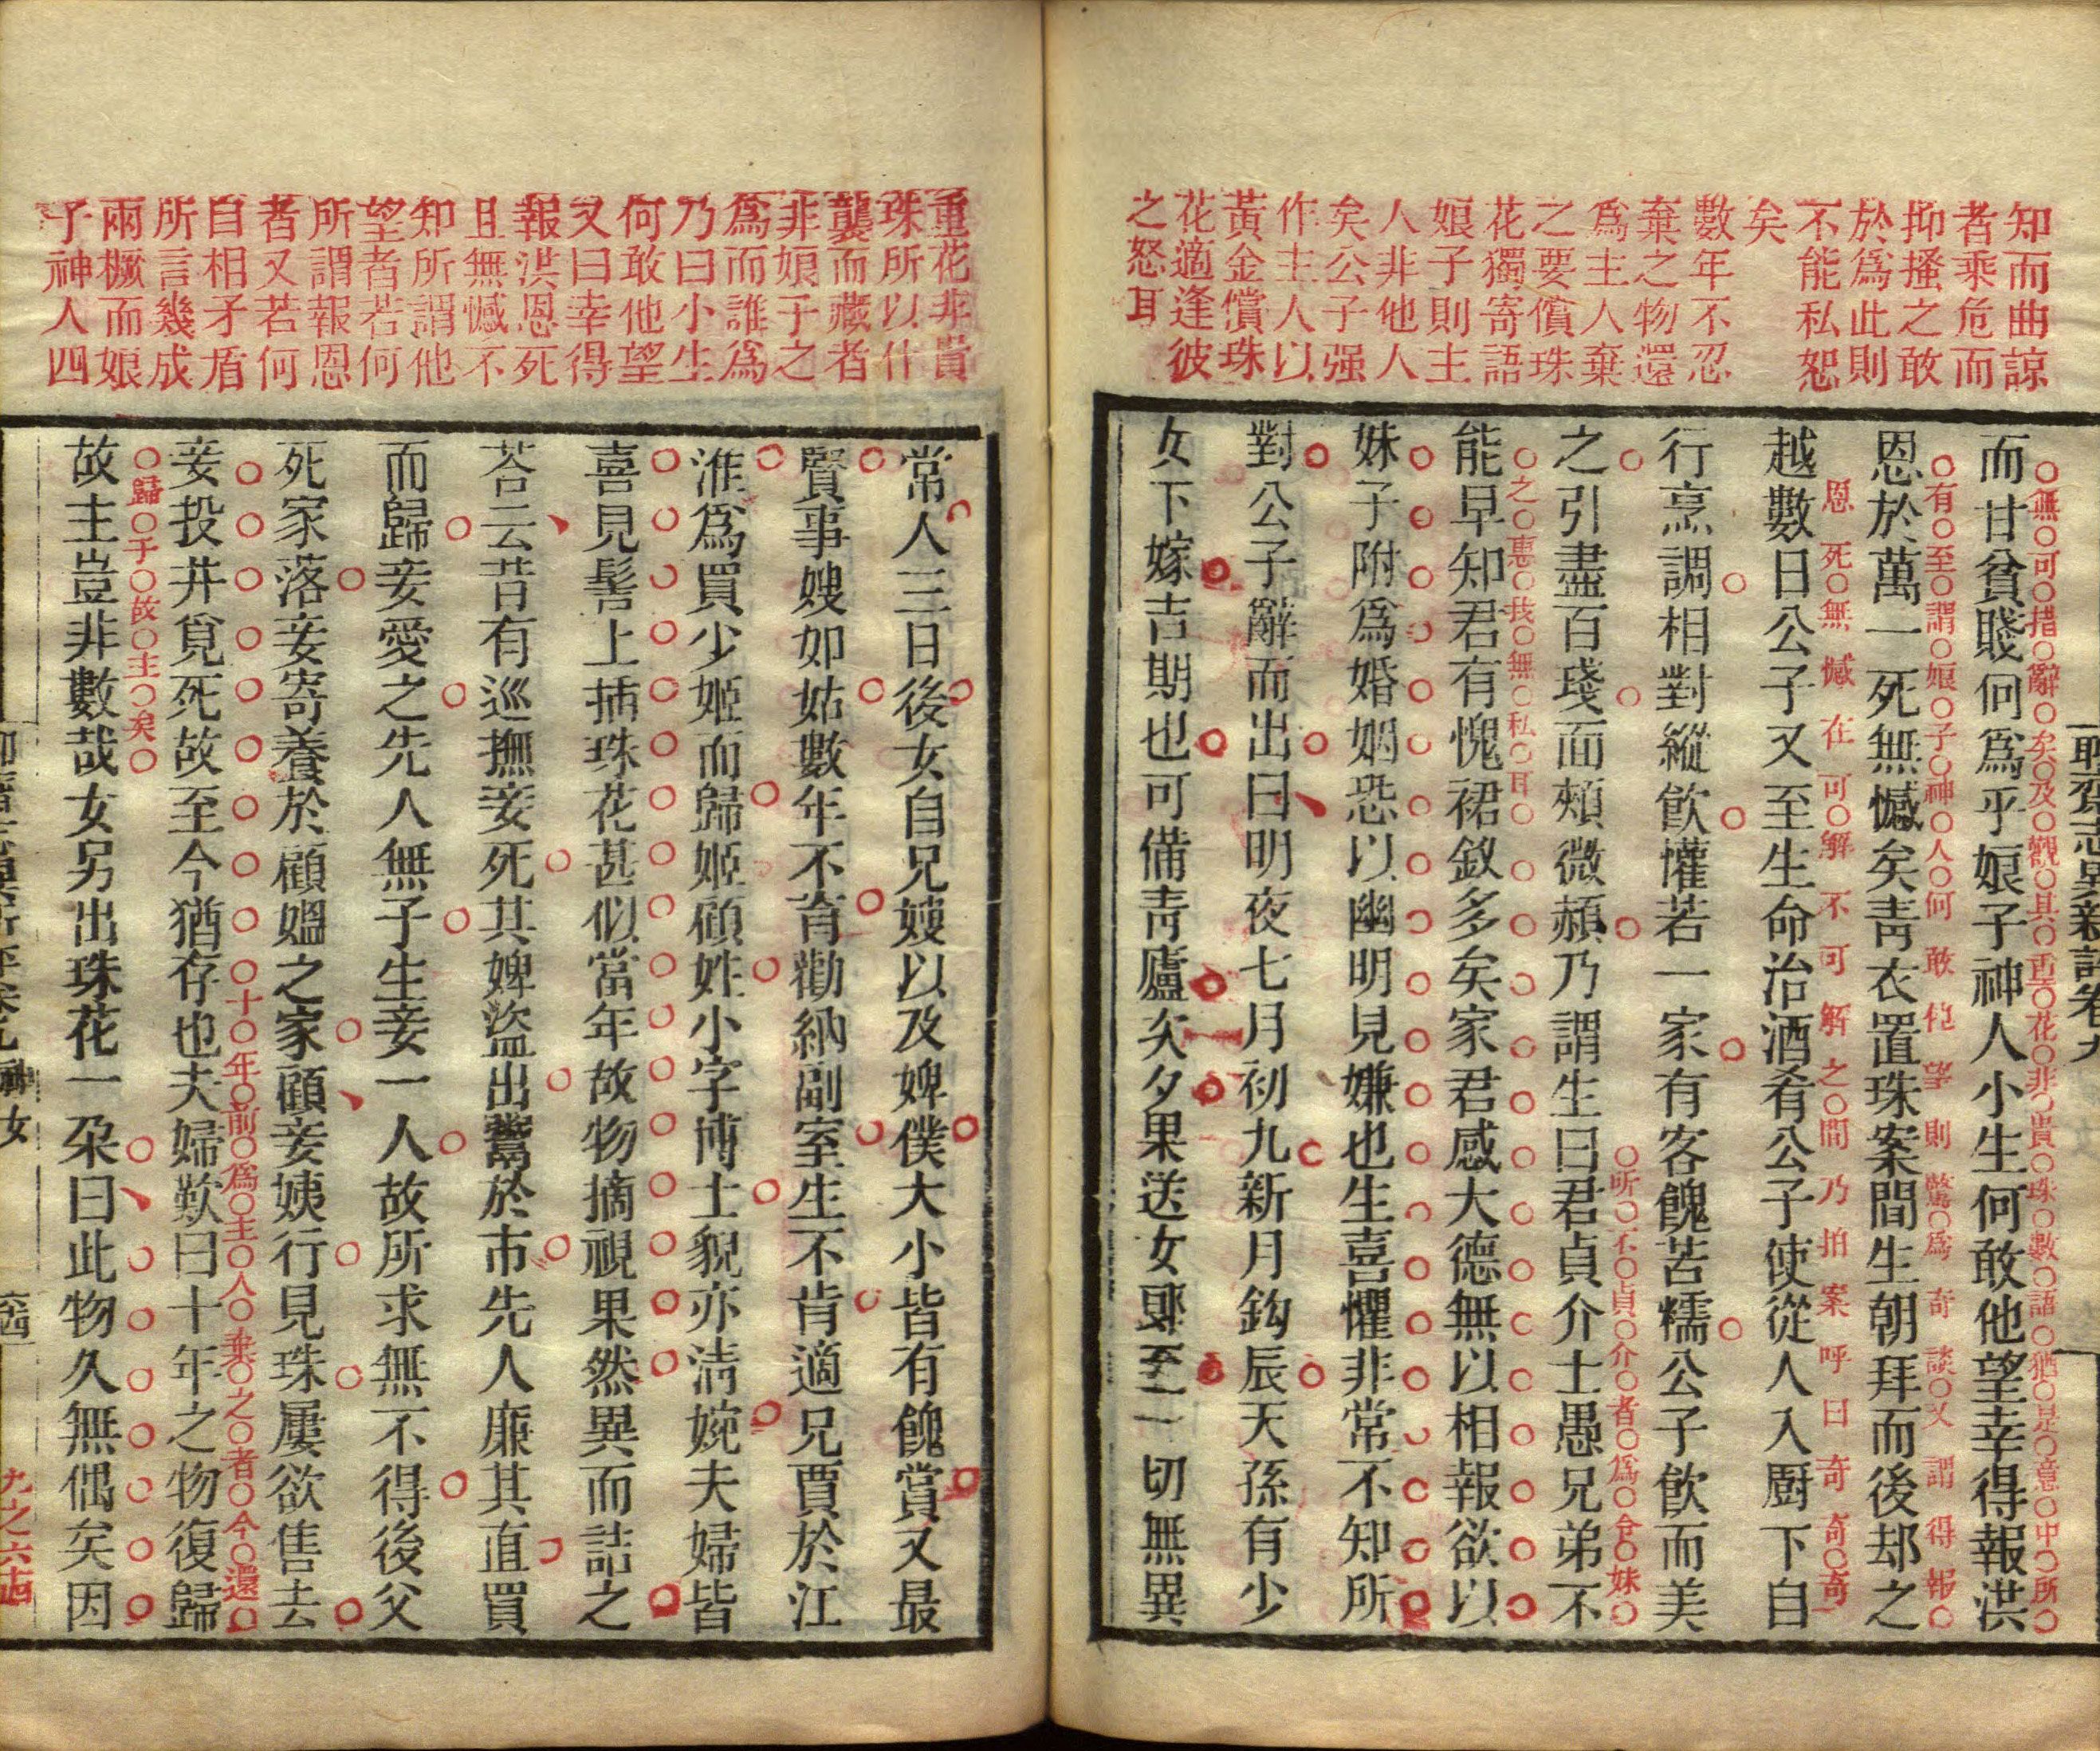 知而曲諒
者乘危而
抑搔之敢
於爲此則
不能私恕
矣
數年不忍
棄之物還
爲主人棄
之要償珠
花獨寄語
娘子則主
人非他人
矣公子强
作主人以
黃金償珠
花適逢彼
之怒耳
聊齋志異新評卷九
無可措辭矣及觀其重花非貴珠數語猶是意中所
而甘貧賤何爲乎娘子神人小生何敢他望幸得報洪
有至謂娘子神人何敢他望則驚爲奇談又謂得報
恩於萬一死無憾矣靑衣置珠案間生朝拜而後却之
恩死無憾在可解不可解之間乃拍案呼曰奇奇奇
越數日公子又至生命治酒肴公子使從人入厨下自
行烹調相對縱飮懽若一家有客餽苦糯公子飮而美
之引盡百琖面頰微赬乃謂生曰君貞介士愚兄弟不
所不貞介者爲令妹
能早知君有愧裙釵多矣家君感大德無以相報欲以
之惠我無私耳
妹子附爲婚姻恐以幽明見嫌也生喜懼非常不知所
對公子辭而出曰明夜七月初九新月鈎辰天孫有少
女下嫁吉期也可備靑廬次夕果送女郞至一切無異
重花非貴
珠所以什
襲而藏者
非娘子之
爲而誰爲
乃曰小生
何敢他望
又曰幸得
報洪恩死
且無憾不
知所謂他
望者若何
所謂報恩
者又若何
自相矛盾
所言幾成
兩橛而娘
子神人四
常人三日後女自兄嫂以及婢僕大小皆有餽賞又最
賢事嫂如姑數年不育勸納副室生不肯適兄賈於江
淮爲買少姬而歸姬顧姓小字博士貌亦淸婉夫婦皆
喜見髻上插珠花甚似當年故物摘視果然異而詰之
荅云昔有巡撫妾死其婢盜出鬻於市先人廉其直買
而歸妾愛之先人無子生妾一人故所求無不得後父
死家落妾寄養於顧媼之家顧妾姨行見珠屢欲售去
妾投井覓死故至今猶存也夫婦歎曰十年之物復歸
十年前爲主人棄之者今還
故主豈非數哉女另出珠花一朶曰此物久無偶矣因
歸于故主矣
神女
九之六十四